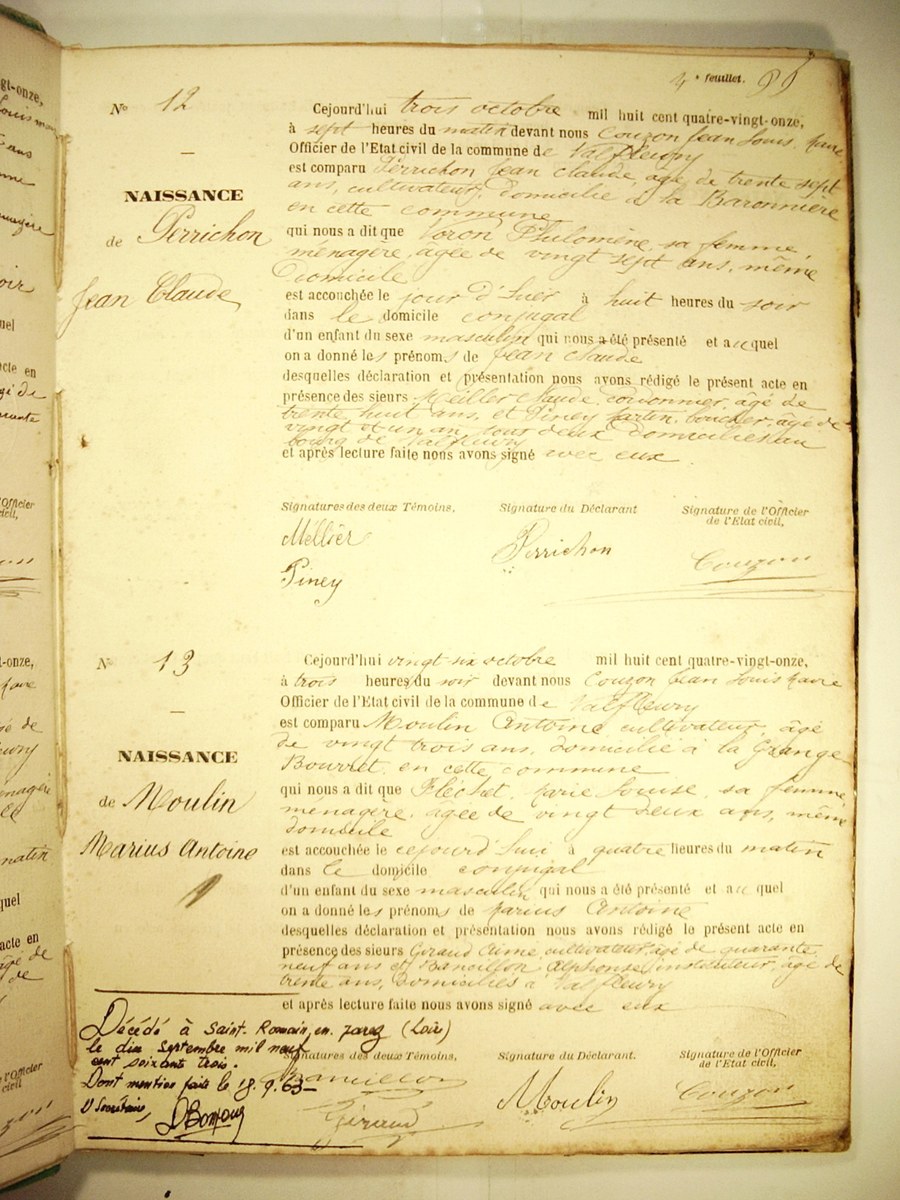 4e feuillet.
No 12
NAISSANCE
de Perrichon
Jean Claude
Cejourd'hui trois octobre mil huit cent quatre-vingt-onze,
à sept heures du matin devant nous Couzon Jean Louis, maire
Officier de l'Etat civil de la commune de Valfleury
est comparu Perrichon Jean Claude, âgé de trente sept
ans, cultivateur, domicilié à la Baronnière
en cette commune
qui nous a dit que Voron Philomène, sa femme,
ménagère, âgée de vingt sept ans, même
domicile
est accouchée le jour d'hier à huit heures du soir
dans le domicile conjugal
d'un enfant du sexe masculin qui nous a été présenté et auquel
on a donné les prénoms de Jean Claude
desquelles déclaration et présentation nous avons rédigé le présent acte en
présence des sieurs Meiller Claude, âgé de
trente huit ans, et Piney Martin, boucher, âgé de
vingt et un an, tous deux domiciliés au
bourg de Valfleury
et après lecture faite nous avons signé avec eux
Signatures des deux Témoins,
Signature du Déclarant
Signature de l'Officier
de l'Etat civil,
Mellier
Piney
Perrichon
Couzon
No 13
NAISSANCE
de Moulin
Marius Antoine
Cejourd'hui vingt six octobre mil huit cent quatre-vingt-onze,
à trois heures du soir devant nous Couzon Jean Louis maire
Officier de l'Etat civil de la commune de Valfleury
est comparu Moulin Antoine, cultivateur, âgé
de vingt trois ans, domicilié à la Grange
Bourret, en cette commune
qui nous a dit que Fléchet, Marie Louise, sa femme,
ménagère, âgée de vingt deux ans, même
domicile
est accouchée le cejourd'hui à quatre heures du matin
dans le domicile conjugal
d'un enfant du sexe masculin qui nous a été présenté et auquel
on a donné les prénoms de Marius Antoine
desquelles déclaration et présentation nous avons rédigé le présent acte en
présence des sieurs Giraud Aimé, cultivateur, âgé de quarante
neuf ans et Alphonse, instituteur, âgé de
trente ans, domiciliés à Valfleury
et après lecture faite nous avons signé avec eux
Signatures des deux Témoins,
Signature du Déclarant.
Signature de l'Officier
de l'Etat civil,
Giraud
Moulin
Couzon
Décédé à Saint. Romain. en. Jarez (Loire)
le dix Septembre mil neuf
cent soixante trois.
Dont mention faite le 18.9.63